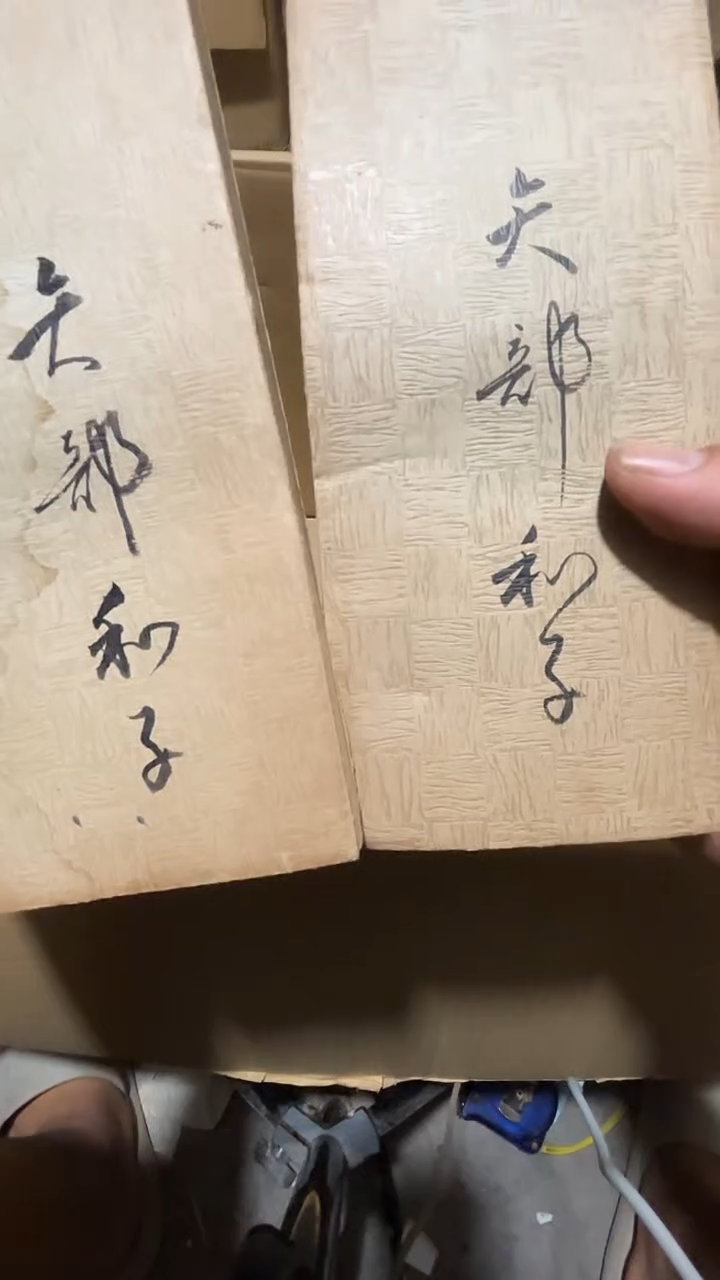 矢部和子
矢部和子